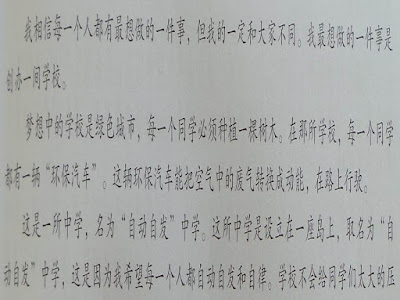 我相信每一个人都有最想做的一件事，但我的一定和大家不同。我最想做的一件事是
创办一间学校。
梦想中的学校是绿色城市，每一个同学必须种植一棵树木。在那所学校，每一个同学
都有一辆“环保汽车”。这辆环保汽车能把空气中的废气转换成动能，在路上行驶。
这是一所中学，名为“自动自发”中学。这所中学是设立在一座岛上，取名为“自
动自发”中学，这是因为我希望每一个人都自动自发和自律。学校不会给同学们太大的压